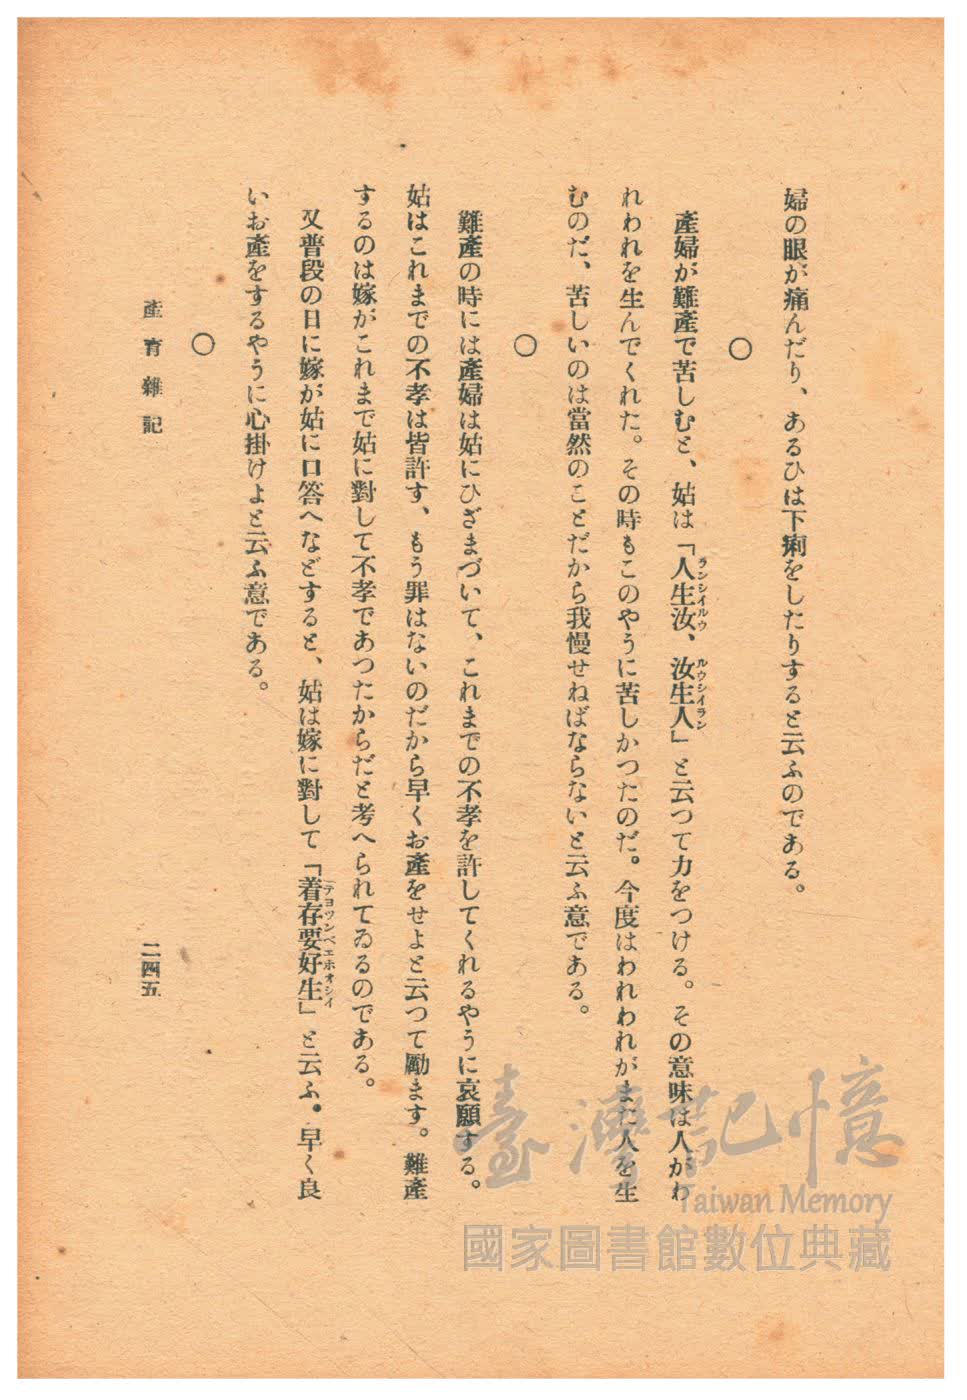 婦の眼が痛んだり、あるひは下痢をしたりすると云ふのである。
○
產婦が難產で苦しむと、姑は「人生汝、汝生人」と云つて力をつける。その意味は人がわ
ランシイルウ
ルウシイラン
れわれを生んでくれた。その時もこのやうに苦しかつたのだ。今度はわれわれがまた人を生
むのだ、苦しいのは當然のことだから我慢せねばならないと云ふ意である。
○
難產の時には產婦は姑にひざまづいて、これまでの不孝を許してくれるやうに哀願する。
姑はこれまでの不孝は皆許す、もう罪はないのだから早くお產をせよと云つて勵ます。難產
するのは嫁がこれまで姑に對して不孝であつたからだと考へられてゐるのである。
又普段の日に嫁が姑に口答へなどすると、姑は嫁に對して「着存要好生」と云ふ。早く良
テヨツンベエホオシイ
いお產をするやうに心掛けよと云ふ意である。
○
產育雜記
二四五
臺灣記憶
Taiwan Memory
國家圖書館數位典藏